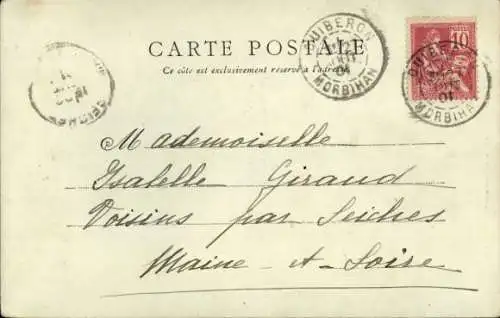 CARTE POSTALE
Ce côté est exclusivement réservé à l'adresse
QUIBERON
MORBIHAN
10
QUIBERON
01
MORBIHAN
SEICHES
Mademoiselle
Isabelle Giraud
Voisins par Seiches
Maine-et-Loire